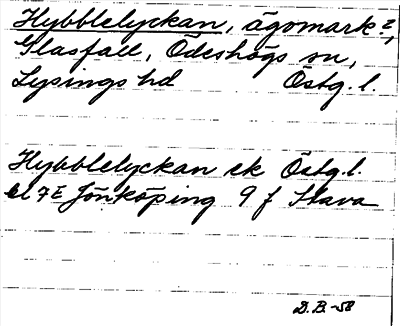 Hybblelyckan, ägomark?,
Glasfall, Ödeshögs sn,
Lysings hd Östg. l.
Hybblelyckan ek Östg. l.
bl 7E Jönköping 9 f Stava
D.B.-58